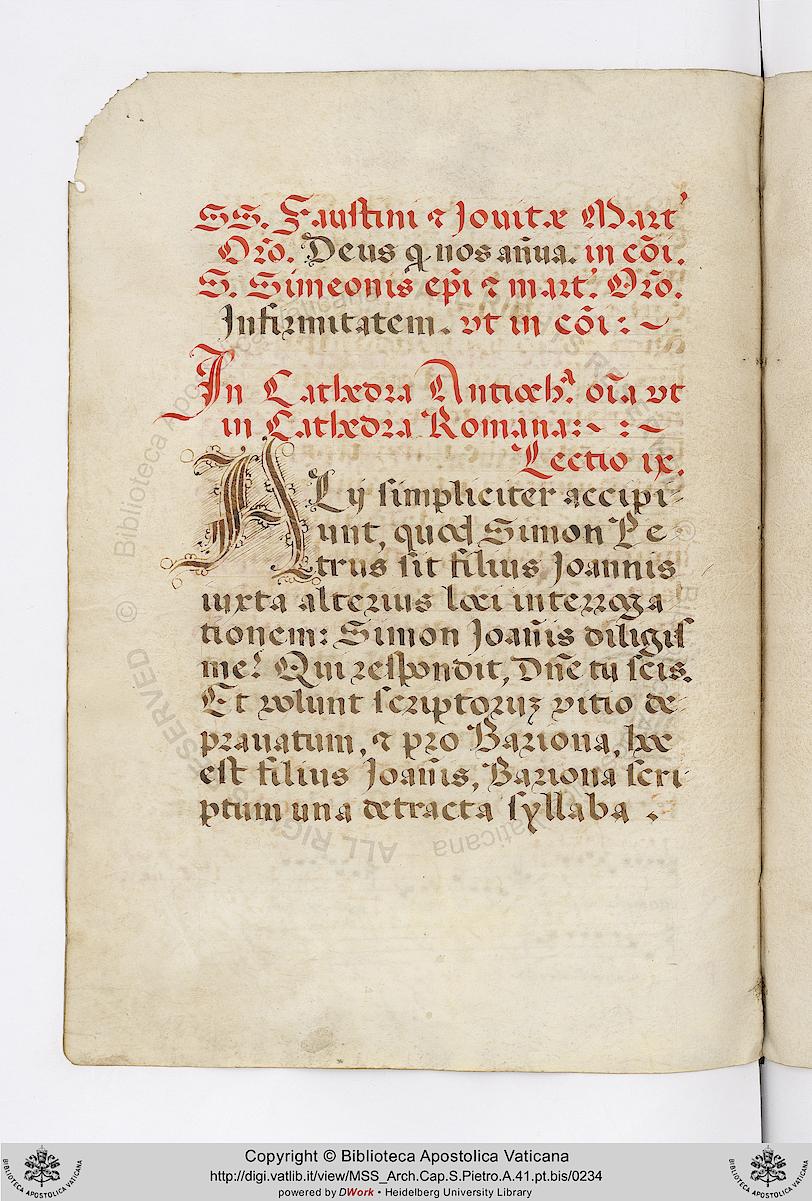 SS. Faustini ⁊ Jovitæ Mart'
Orõ. Deus q nos an̄ua. in cõi.
S. Simeonis ep̃i ⁊ mart'. Orõ.
Infirmitatem. vt in cõi: ~
In Cathedra Antioch.ª oĩa vt
in Cathedra Romana: ~ : ~
Lectio ix.
ALij simpliciter accipi
unt, quod Simon Pe
trus sit filius Joannis
iuxta alterius loci interroga
tionem: Simon Joañis diligis
me? Qui respondit, Dñe tu scis.
Et volunt scriptoruꝫ vitio de-
prauatum, ⁊ pro Bariona, hoc
est filius Joañis, Bariona scri
ptum una detracta syllaba.
© Biblioteca Apostolica Vaticana
ALL RIGHTS RESERVED
BIBLIOTECA APOSTOLICA VATICANA
Copyright © Biblioteca Apostolica Vaticana
http://digi.vatlib.it/view/MSS_Arch.Cap.S.Pietro.A.41.pt.bis/0234
powered by DWork • Heidelberg University Library
BIBLIOTECA APOSTOLICA VATICANA